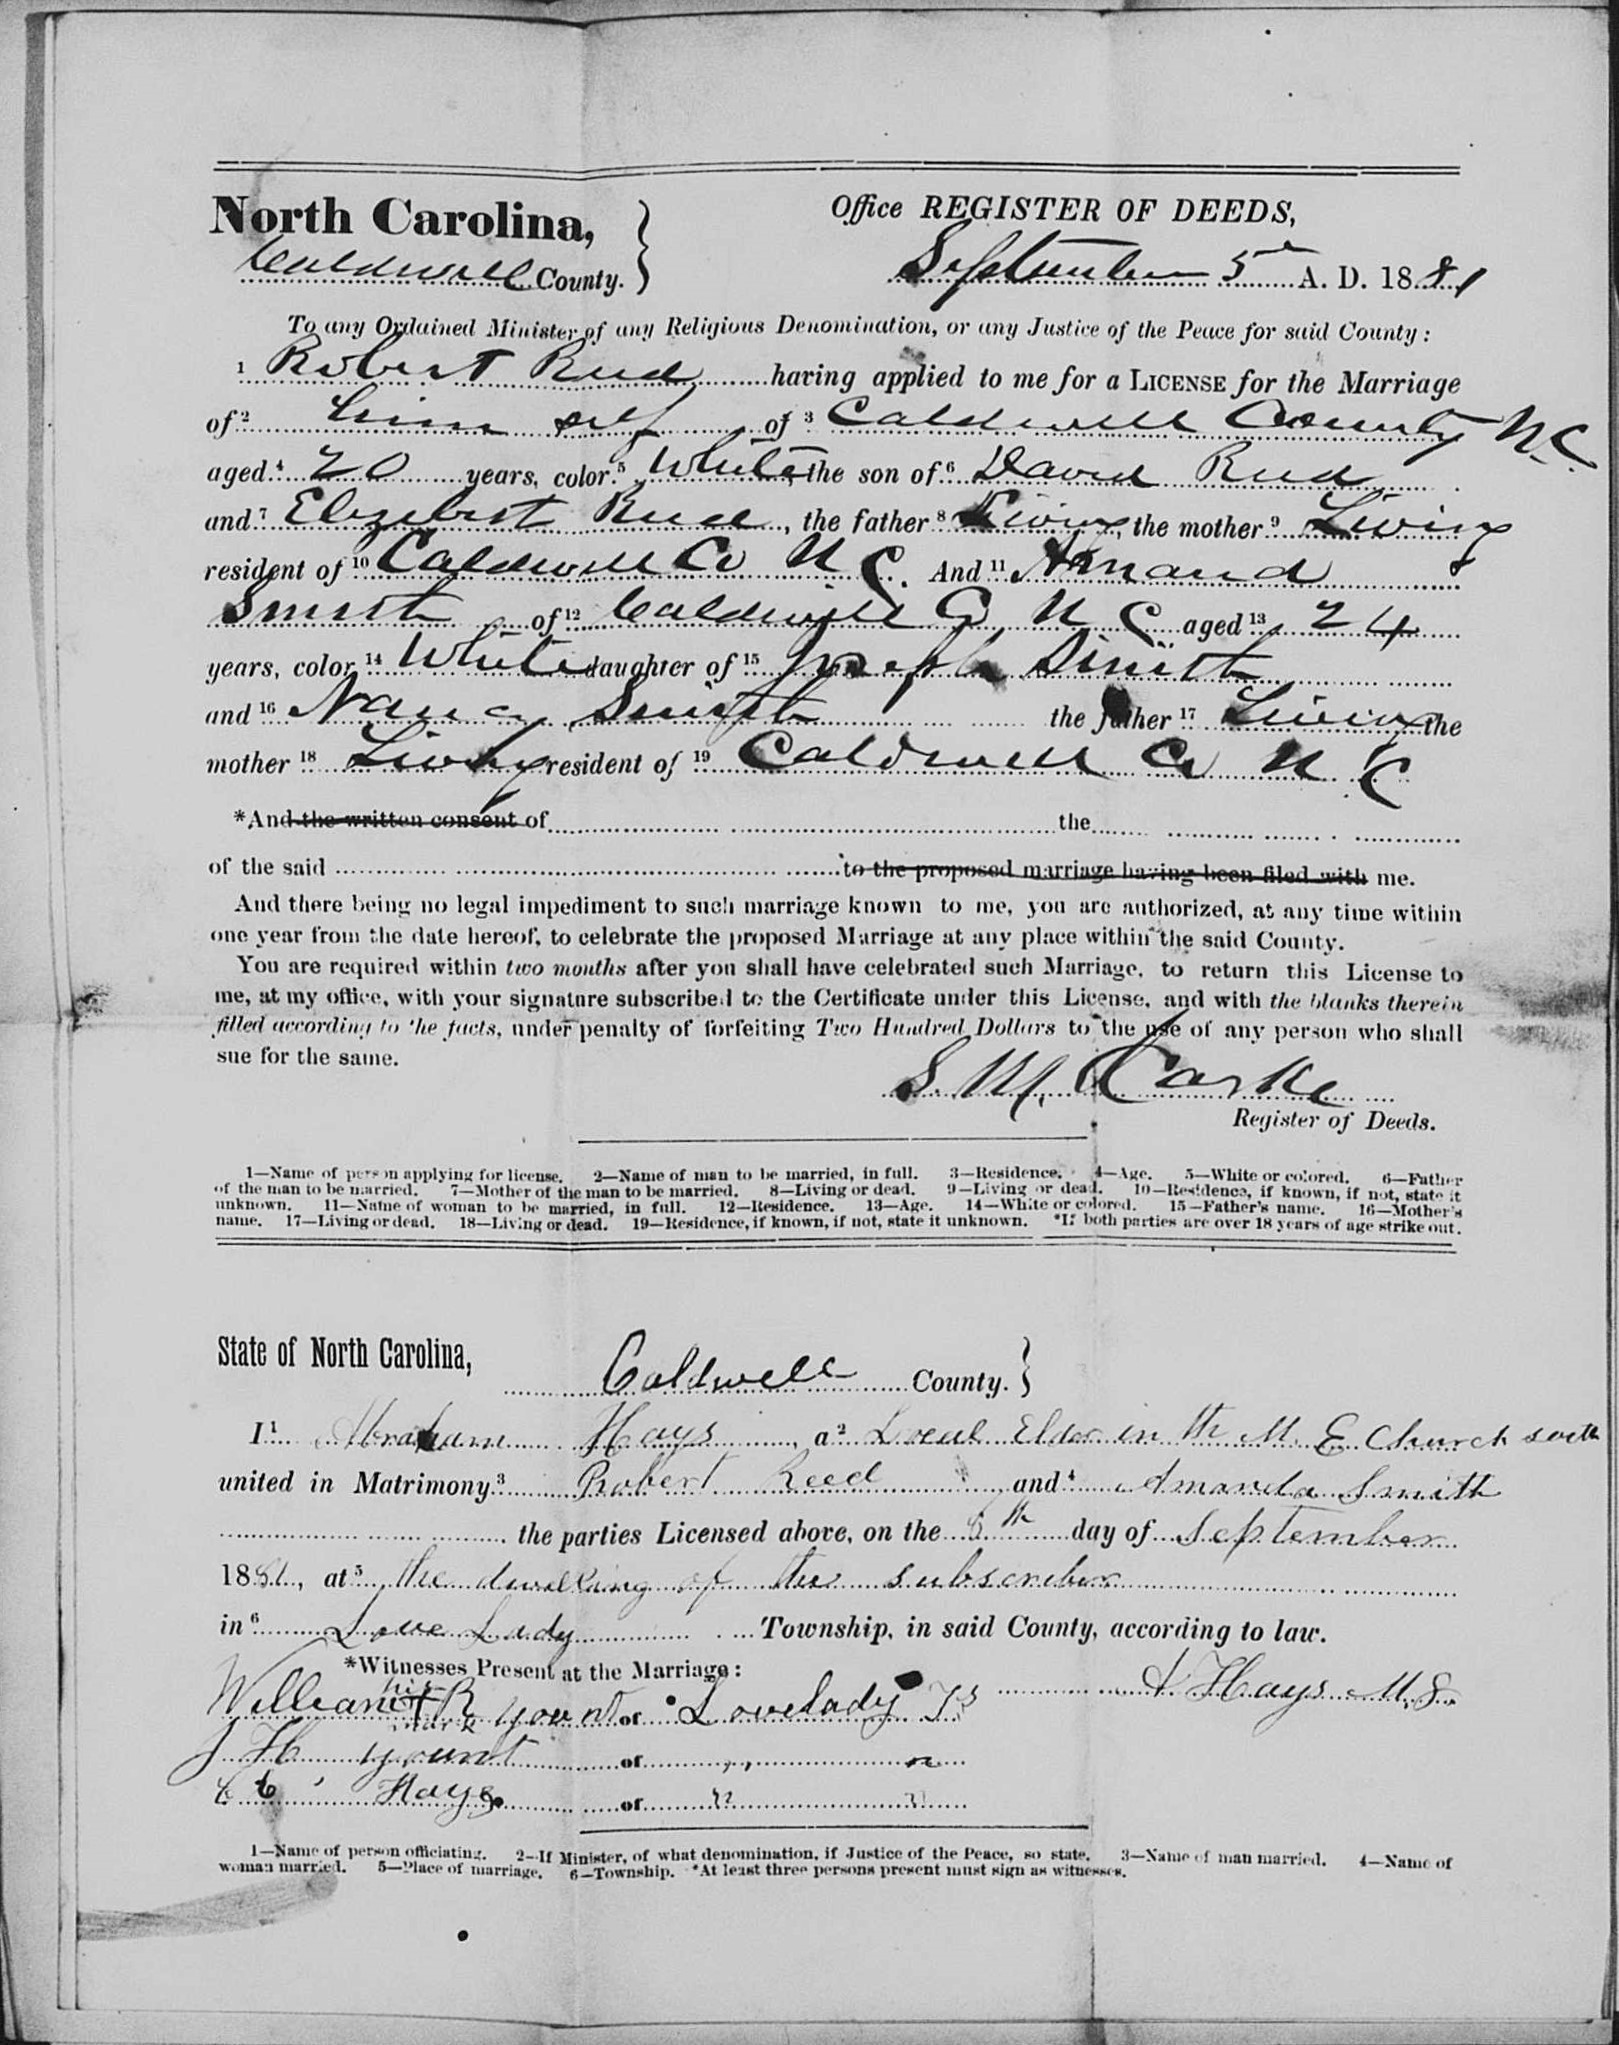 North Carolina,
Caldwell County.
Office REGISTER OF DEEDS,
September 5th A. D. 1881
To any Ordained Minister of any Religious Denomination, or any Justice of the Peace for said County:
1 Robert Reed having applied to me for a LICENSE for the Marriage
of 2 him self of 3 Caldwell County N.C.
aged 4 20 years, color 5 White, the son of 6 David Reed
and 7 Elizebet Reed, the father 8 Living, the mother 9 Living
resident of 10 Caldwell Co N C. And 11 Amand
Smith of 12 Caldwell Co N C aged 13 24
years, color 14 White daughter of 15 Joseph Smith
and 16 Nancy Smith the father 17 Living the
mother 18 Living resident of 19 Caldwell Co N C
*And the written consent of the
of the said to the proposed marriage having been filed with me.
And there being no legal impediment to such marriage known to me, you are authorized, at any time within
one year from the date hereof, to celebrate the proposed Marriage at any place within the said County.
You are required within two months after you shall have celebrated such Marriage, to return this License to
me, at my office, with your signature subscribed to the Certificate under this License, and with the blanks therein
filled according to the facts, under penalty of forfeiting Two Hundred Dollars to the use of any person who shall
sue for the same.
S. M. Clarke
Register of Deeds.
1—Name of person applying for license. 2—Name of man to be married, in full. 3—Residence. 4—Age. 5—White or colored. 6—Father
of the man to be married. 7—Mother of the man to be married. 8—Living or dead. 9—Living or dead. 10—Residence, if known, if not, state it
unknown. 11—Name of woman to be married, in full. 12—Residence. 13—Age. 14—White or colored. 15—Father's name. 16—Mother's
name. 17—Living or dead. 18—Living or dead. 19—Residence, if known, if not, state it unknown. *If both parties are over 18 years of age strike out.
State of North Carolina,
Caldwell County.
I 1 Abraham Hays, a 2 Local Elder in th M. E Church south
united in Matrimony 3 Robert Reed and 4 Amanda Smith
the parties Licensed above, on the th day of September
1881, at 5 the dwelling of the subscriber
in 6 Love Lady Township, in said County, according to law.
*Witnesses Present at the Marriage:
A Hays
his
William + R Yount of Lovelady Ts
mark
J H Yount of " "
Hays of " "
1—Name of person officiating. 2—If Minister, of what denomination, if Justice of the Peace, so state. 3—Name of man married. 4—Name of
woman married. 5—Place of marriage. 6—Township. *At least three persons present must sign as witnesses.